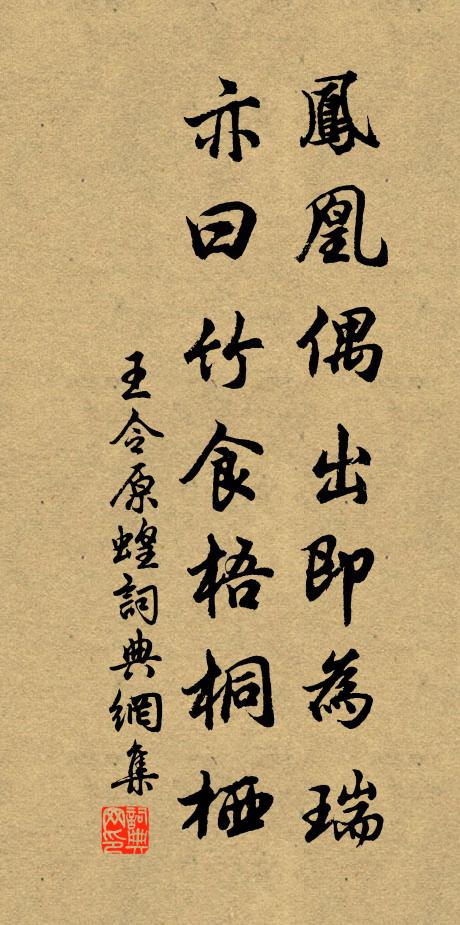 鳳凰偶出即為瑞
亦曰竹食梧桐栖
王令原蝗詞典網集
詞典
网印